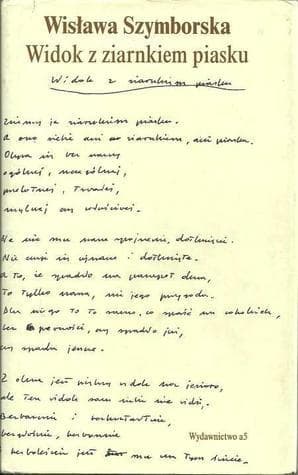 Wisława Szymborska
Widok z ziarnkiem piasku
Widok z ziarnkiem piasku
Zwiemy je ziarnkiem piasku.
A ono siebie ani ziarnkiem, ani piasku.
Obywa się bez nazwy
ogólnej, szczególnej,
przelotnej, trwałej,
mylnej czy właściwej.
Na nic mu nasze spojrzenie, dotknięcie.
Nie czuje się ujrzane i dotknięte.
A to, że spadło na parapet okna,
to tylko nasza, nie jego przygoda.
Dla niego to to samo, co spaść na cokolwiek,
bez pewności, czy spadło już,
czy spada jeszcze.
Z okna jest piękny widok na jezioro,
ale ten widok sam siebie nie widzi.
Bezbarwnie i bezkształtnie,
bezgłośnie, bezwonnie
bezboleśnie jest mu na tym świecie.
Wydawnictwo a5